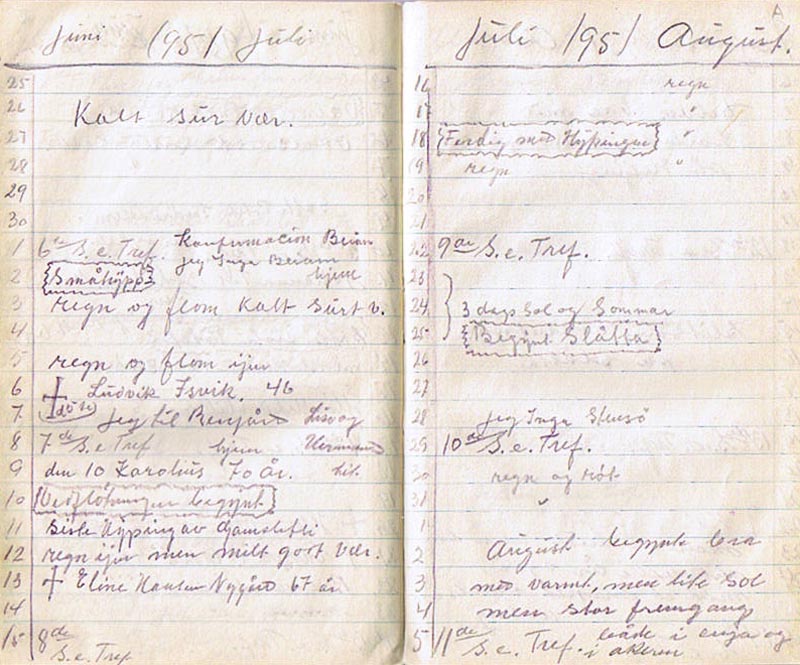 Juni 1951 Juli
25
26 Kalt sur vær.
27
28
29
30
1 6te S.e. Tref. Konfirmacion Beiarn
jeg Inga Beiarn
2 Småhypp hjem
3 regn og flom kalt surt v.
4
5 regn og flom ijen
6 Ludvik Isvik. 46
7 døde jeg til Lise og
8 7de S.e Tref hjem Herman
9 den 10 Karolius 70 år. hit.
10 Vedfløtningen begynt
11 siste Hyping av
12 regn ijen men milt gott vær.
13 † Eline Hansen Nygård 67 år
14
15 8de
S.e. Tref
Juli 1951 August.
A
16 regn
17 "
18 Ferdig med Hypingen "
19 regn "
20
21
22 9de S.e. Tref.
23
24 3 dags Sol og Sommar
25 Begynt Slåtta
26
27
28 jeg Inga
29 10de S.e. Tref.
30 regn og
31 "
1
2 August begynte bra
3 med varmt, men lite Sol
4 men stor fremgang
5 11de S.e. Tref. både i enga og
i åkeren